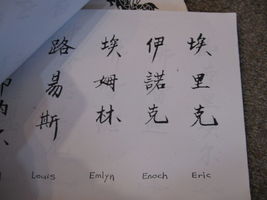 路易斯
埃姆林
伊諾克
埃里克
Louis
Emlyn
Enoch
Eric